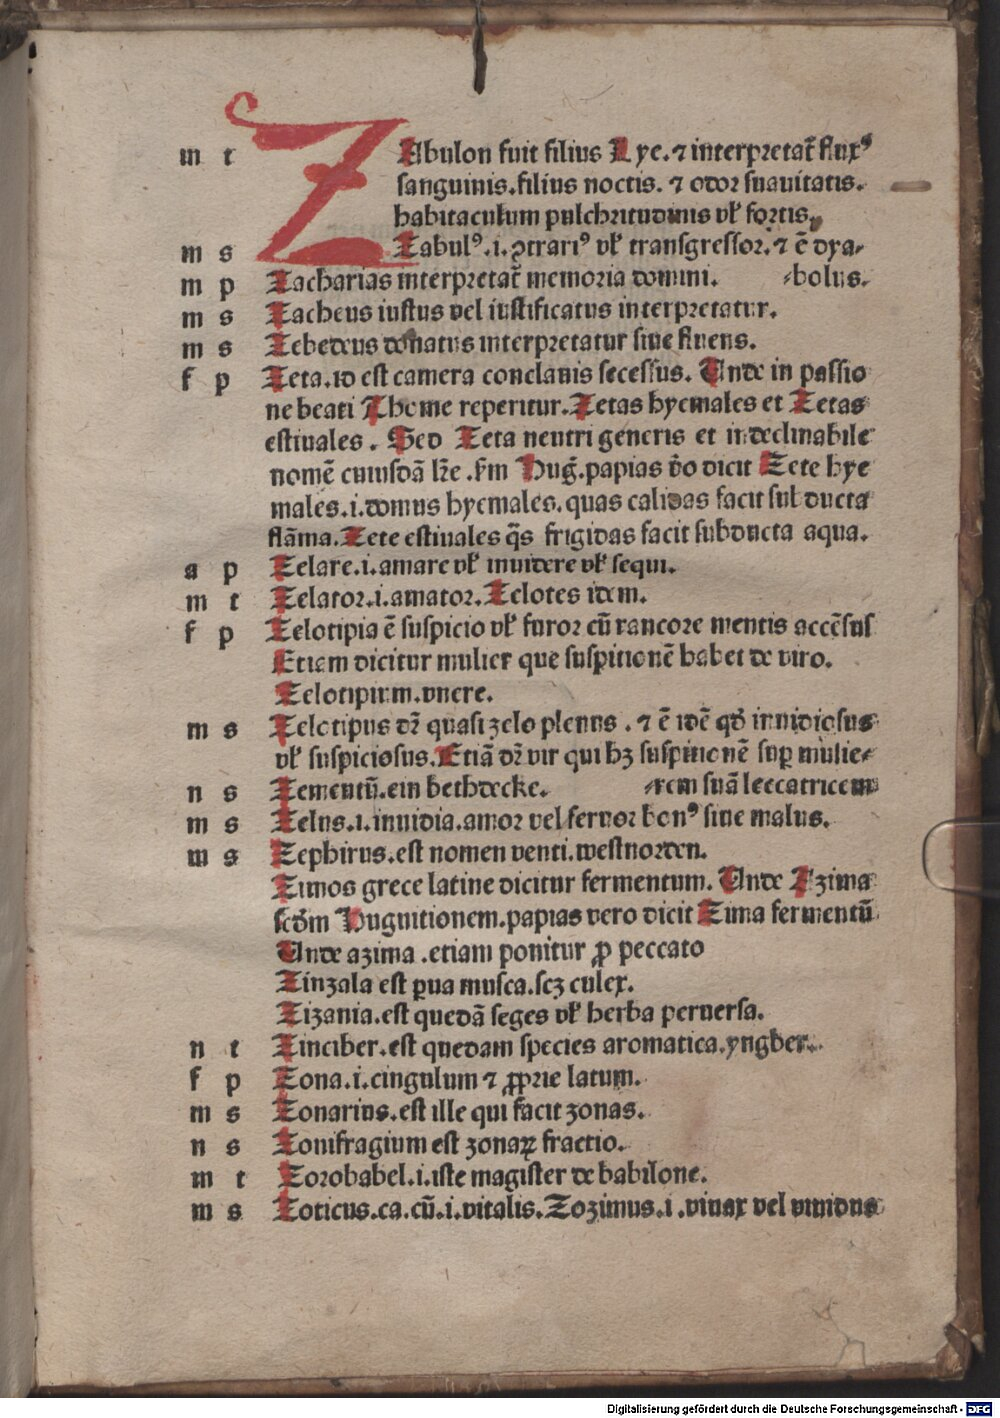 m t ZAbulon fuit filius Lye. ⁊ interpretat᷑ flux⁹
sanguinis. filius noctis. ⁊ odor suauitatis.
habitaculum pulchritudinis vł fortis.
m s Zabul⁹ .i. ↄtrari⁹ vł transgressor. ⁊ ē dya-
m p Zacharias interpretat᷑ memoria domini. -bolus.
m s Zacheus iustus vel iustificatus interpretatur.
m s Zebedeus donatus interpretatur siue fluens.
f p Zeta. id est camera conclauis secessus. Unde in passio
ne beati Thome reperitur. Zetas hyemales et Zetas
estiuales . Sed Zeta neutri generis et indeclinabile
nomē cuiusdā lr̄e . ẜm Hug̃. papias v̓o dicit Zete hye
males .i. domus hyemales. quas calidas facit subducta
flāma. Zete estiuales q̄s frigidas facit subducta aqua.
a p Zelare .i. amare vł inuidere vł sequi.
m t Zelator .i. amator. Zelotes idem.
f p Zelotipia ē suspicio vł furor cū rancore mentis accēsus
Etiam dicitur mulier que suspitionē habet de viro.
Zelotipium. vnere.
m s Zelotipus dr̄ quasi zelo plenus . ⁊ ē idē qd̓ inuidiosus
vł suspiciosus. Etiā dr̄ vir qui hꝫ suspitionē suꝑ mulie-
n s Zementū. ein bethdecke. -rem suā leccatricem
m s Zelus .i. inuidia. amor vel feruor bon⁹ siue malus.
m s Zephirus. est nomen venti. westnorden.
Zimos grece latine dicitur fermentum. Unde Azima
scd̓m Hugnitionem. papias vero dicit Zima fermentū
Unde azima . etiam ponitur ꝓ peccato
Zinzala est ꝑua musca. scꝫ culex.
Zizania. est quedā seges vł herba peruersa.
n t Zinciber. est quedam species aromatica. yngber.
f p Zona .i. cingulum ⁊ ꝓprie latum.
m s Zonarius. est ille qui facit zonas.
n s Zonifragium est zonaꝝ fractio.
m t Zorobabel .i. iste magister de babilone.
m s Zoticus. ca. cū .i. vitalis. Zozimus .i . viuax vel viuidus
Digitalisierung gefördert durch die Deutsche Forschungsgemeinschaft - DFG